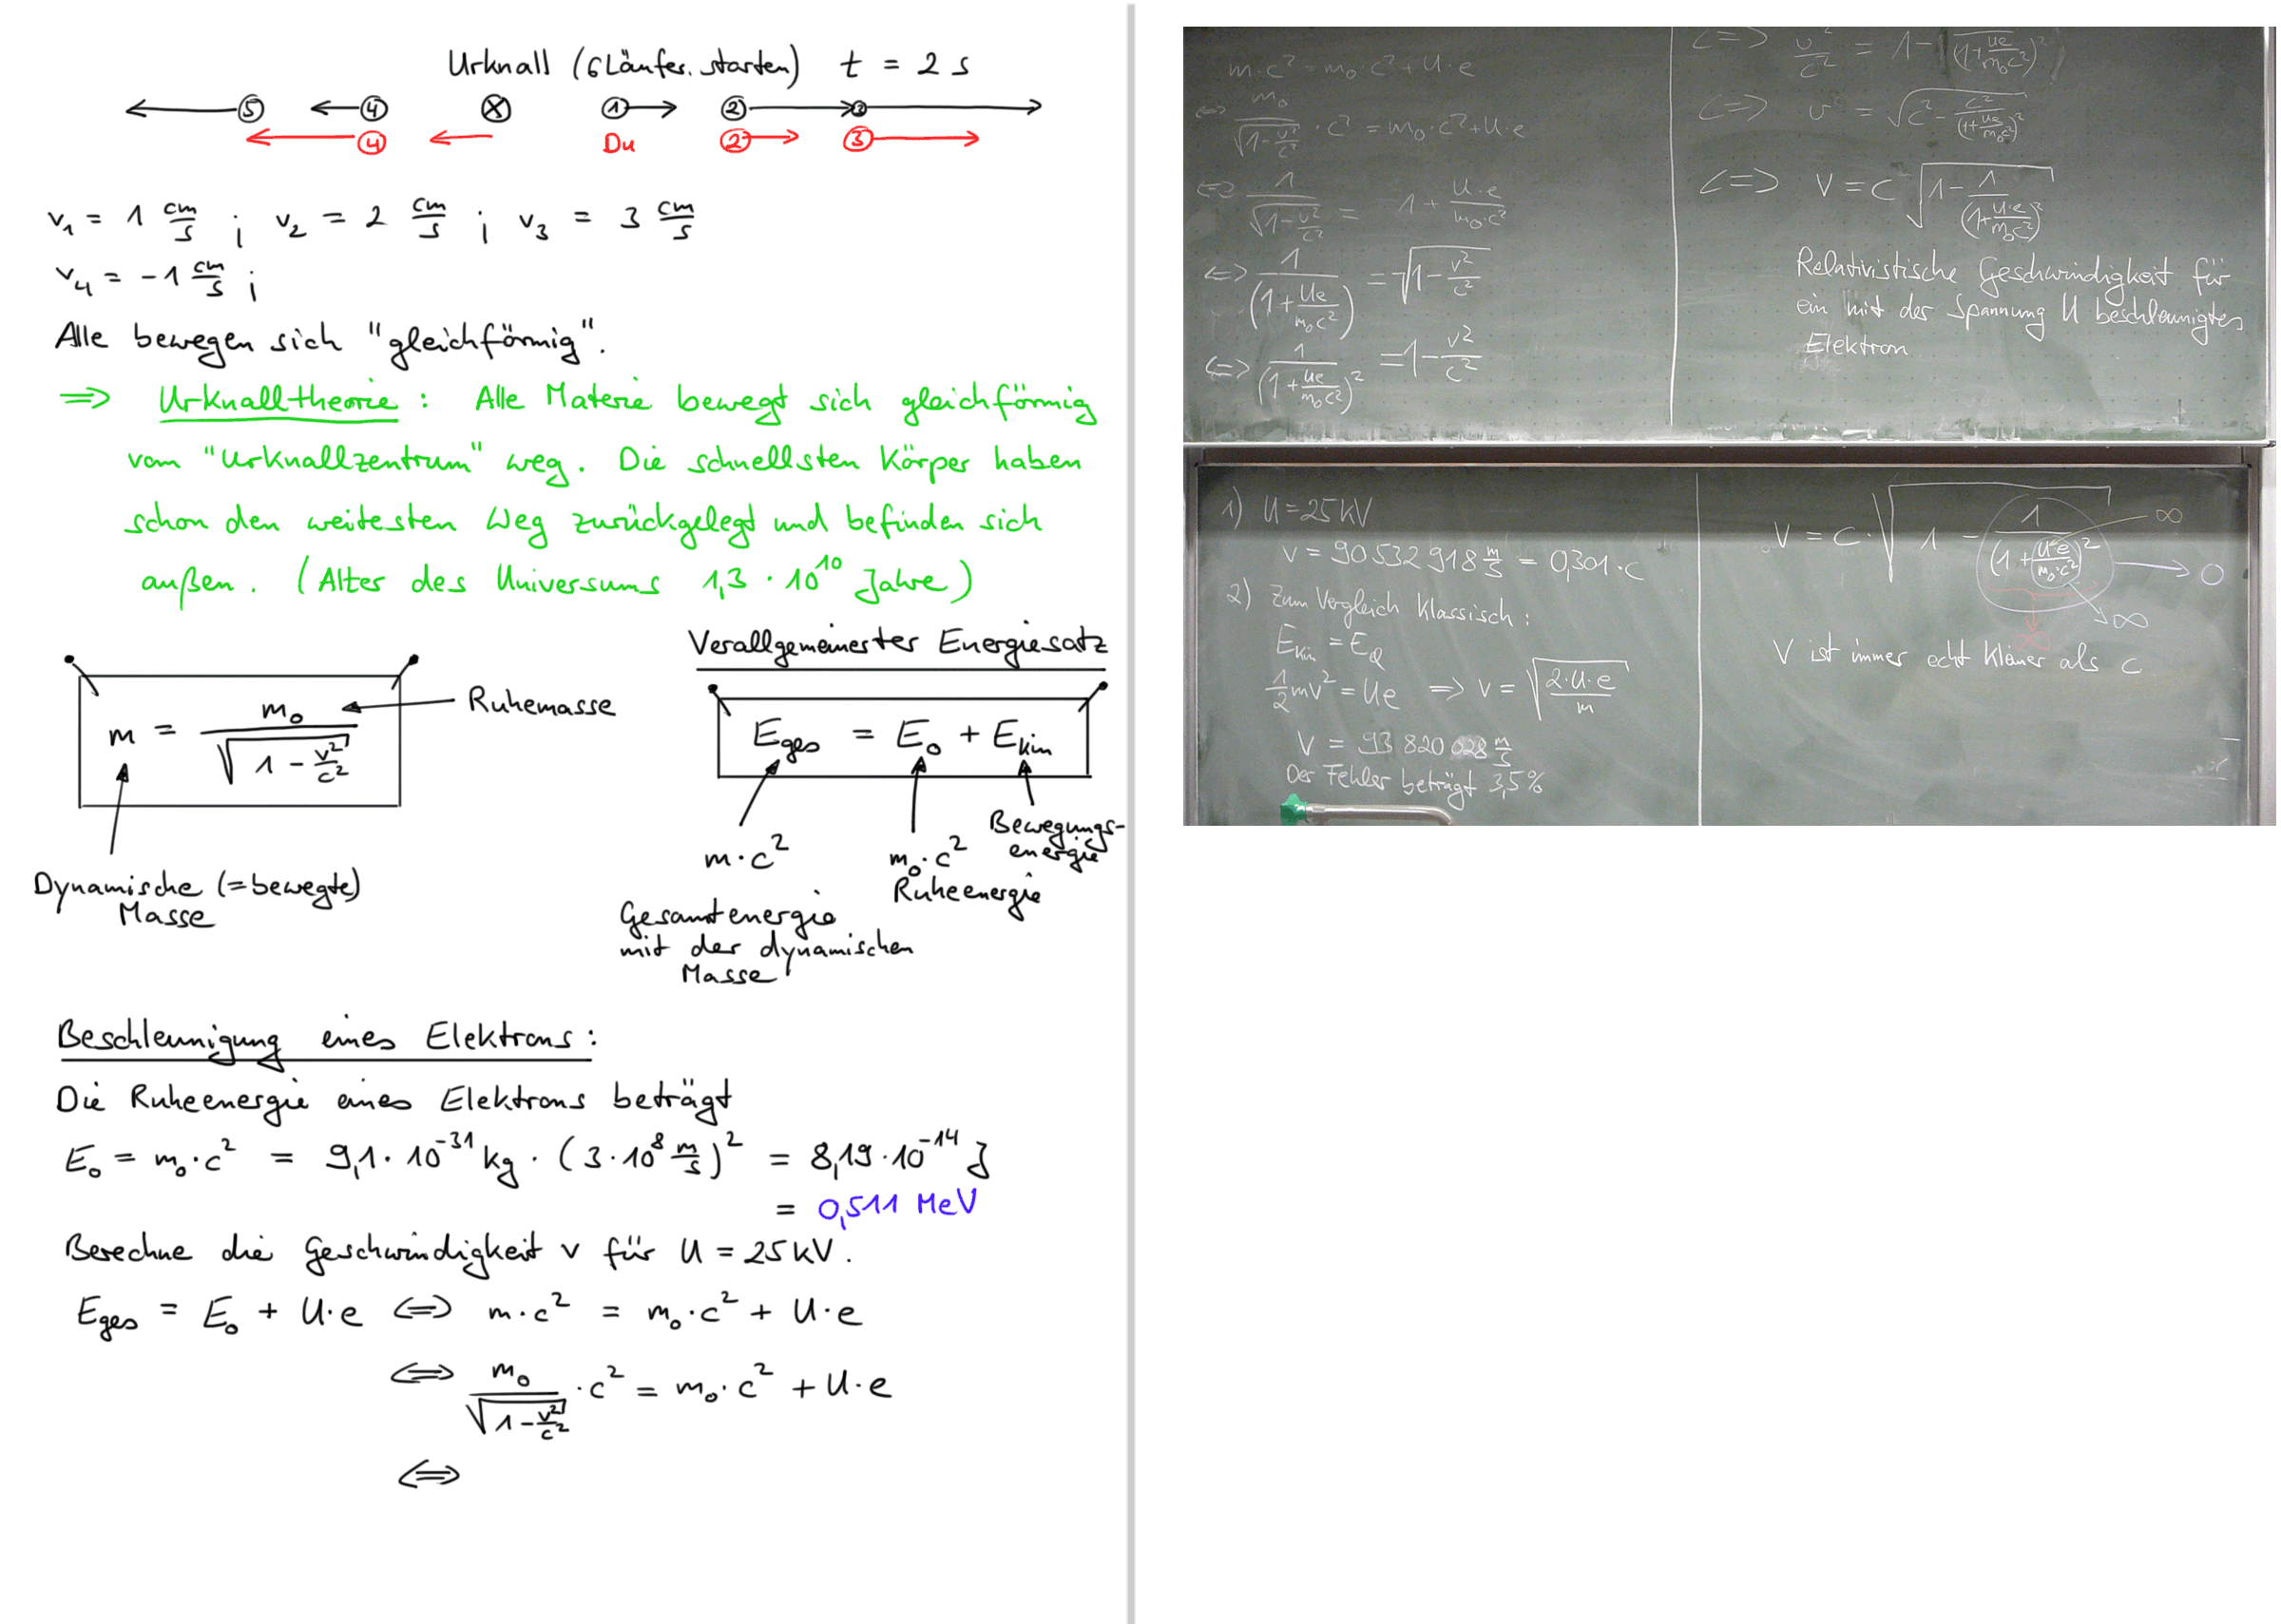 Urknall (6 Läufer starten) t = 2 s
⑤ ④ ⊗ ① ② ③
④ Du ② ③
v₁ = 1 cm/s ; v₂ = 2 cm/s ; v₃ = 3 cm/s
v₄ = -1 cm/s ;
Alle bewegen sich "gleichförmig".
⇒ Urknalltheorie : Alle Materie bewegt sich gleichförmig
vom "Urknallzentrum" weg. Die schnellsten Körper haben
schon den weitesten Weg zurückgelegt und befinden sich
außen. (Alter des Universums 1,3 · 10¹⁰ Jahre)
m = m₀ / √(1 - v²/c²)
Ruhemasse
Dynamische (=bewegte)
Masse
Verallgemeinerter Energiesatz
E_ges = E₀ + E_kin
m·c²
m₀·c²
Ruheenergie
Bewegungs-
energie
Gesamtenergie
mit der dynamischen
Masse
Beschleunigung eines Elektrons:
Die Ruheenergie eines Elektrons beträgt
E₀ = m₀·c² = 9,1·10⁻³¹ kg · (3·10⁸ m/s)² = 8,19·10⁻¹⁴ J
= 0,511 MeV
Berechne die Geschwindigkeit v für U = 25 kV.
E_ges = E₀ + U·e ⇔ m·c² = m₀·c² + U·e
⇔ m₀/√(1-v²/c²) · c² = m₀·c² + U·e
⇔
m·c² = m₀·c² + U·e
⇔ m₀/√(1-v²/c²) · c² = m₀·c² + U·e
⇔ 1/√(1-v²/c²) = 1 + U·e/(m₀·c²)
⇔ 1/(1+Ue/(m₀c²)) = √(1-v²/c²)
⇔ 1/(1+Ue/(m₀c²))² = 1-v²/c²
⇔ v²/c² = 1 - 1/(1+Ue/(m₀c²))²
⇔ v = √(c² - c²/(1+Ue/(m₀c²))²)
⇔ v = c √(1 - 1/(1+U·e/(m₀c²))²)
Relativistische Geschwindigkeit für
ein mit der Spannung U beschleunigtes
Elektron
1) U = 25 kV
v = 90 532 918 m/s = 0,301·c
2) Zum Vergleich Klassisch:
E_kin = E_Q
1/2 mv² = Ue ⇒ v = √(2·U·e/m)
v = 93 820 028 m/s
Der Fehler beträgt 3,5%
v = c·√(1 - 1/(1+U·e/(m₀·c²))²)
∞
→ 0
∞
∞
v ist immer echt kleiner als c